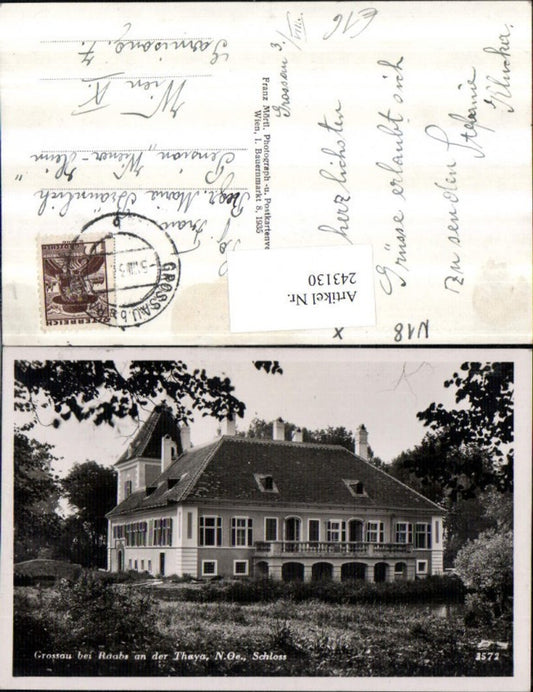 Grossau 3./VIII.
herzlichsten
Grüsse erlaubt sich
zu senden Stefanie
Klucka.
Frau
Regr. Maria Bräunlich
Pension „Wiener-Heim"
Wien IX.
Garnisong. 7.
Franz Mörtl, Photograph u. Postkartenve
Wien, I. Bauernmarkt 8, 1935
GROSSAU b
ÖSTERREICH
GROSCHEN
Artikel Nr.
243130
N18
x
E16
Grossau bei Raabs an der Thaya, N.Oe., Schloss
3572